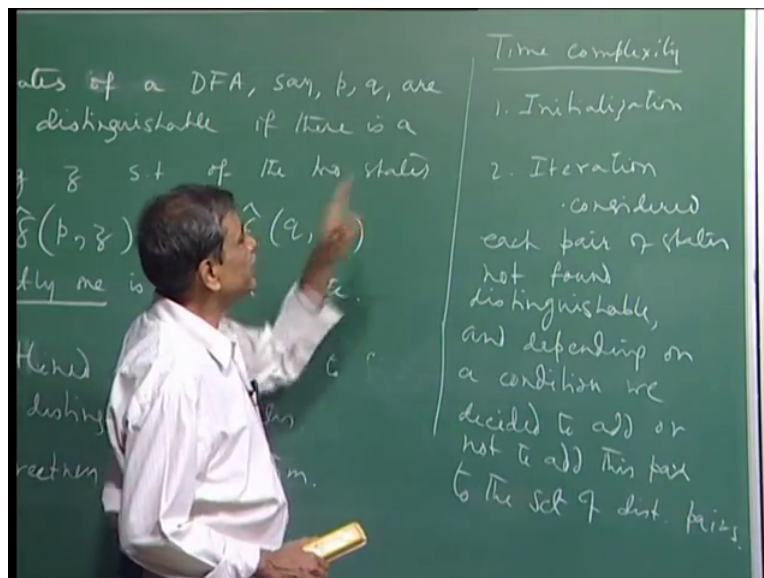 ates of a DFA, say, p, q, are
distinguishable if there is a
g z s.t of the two states
δ̂(p, z) δ̂(q, )
tly one is
tlined to
disting
rectness m.
Time complexity
1. Initialization
2. Iteration
. considered
each pair of states
not found
distinguishable,
and depending on
a condition we
decided to add or
not to add this pair
to the set of dist. pairs.